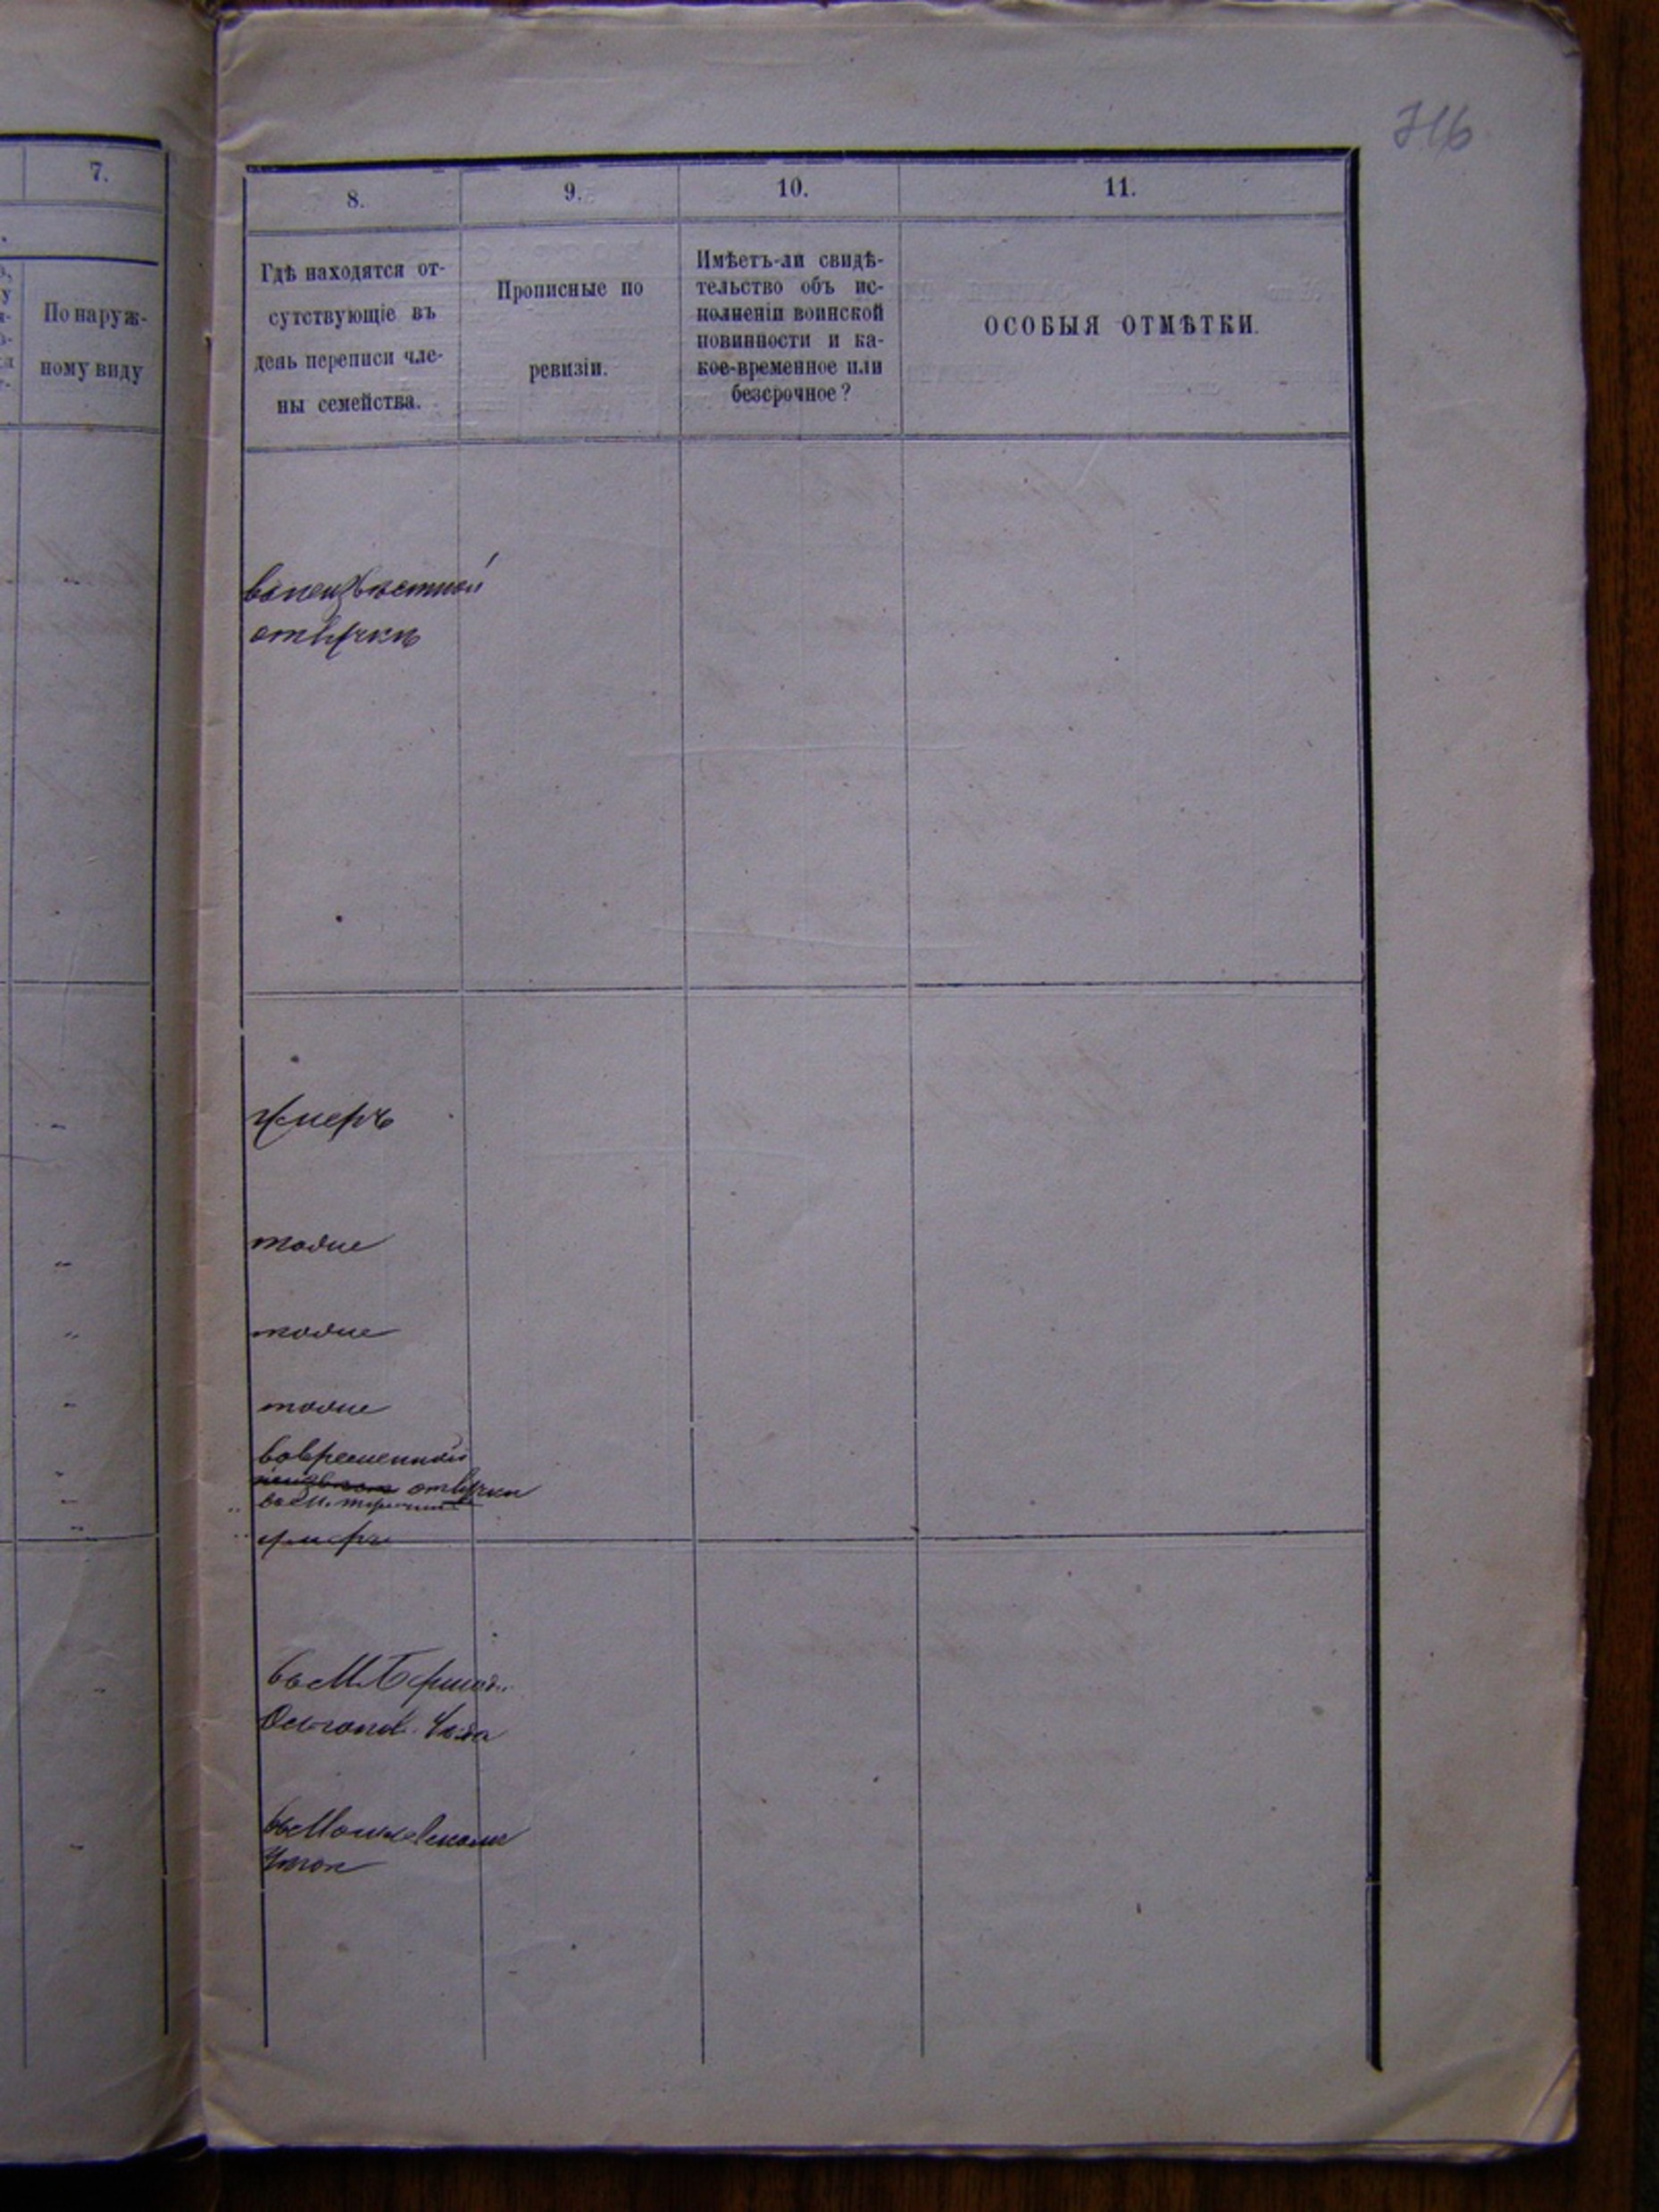 716
7.
По наруж-
ному виду
8.
9.
10.
11.
Гдѣ находятся от-
сутствующіе въ
день переписи чле-
ны семейства.
Прописные по
ревизіи.
Имѣетъ-ли свидѣ-
тельство объ ис-
полненіи воинской
повинности и ка-
кое-временное или
безсрочное?
ОСОБЫЯ ОТМѢТКИ.
в неизвѣстной
отлучкѣ
умеръ
тоже
тоже
тоже
во временной
отлучки
умеръ
въ М.
уѣзда
въ